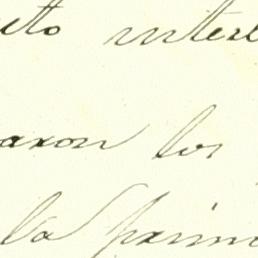 eto interè
aron los
la prim